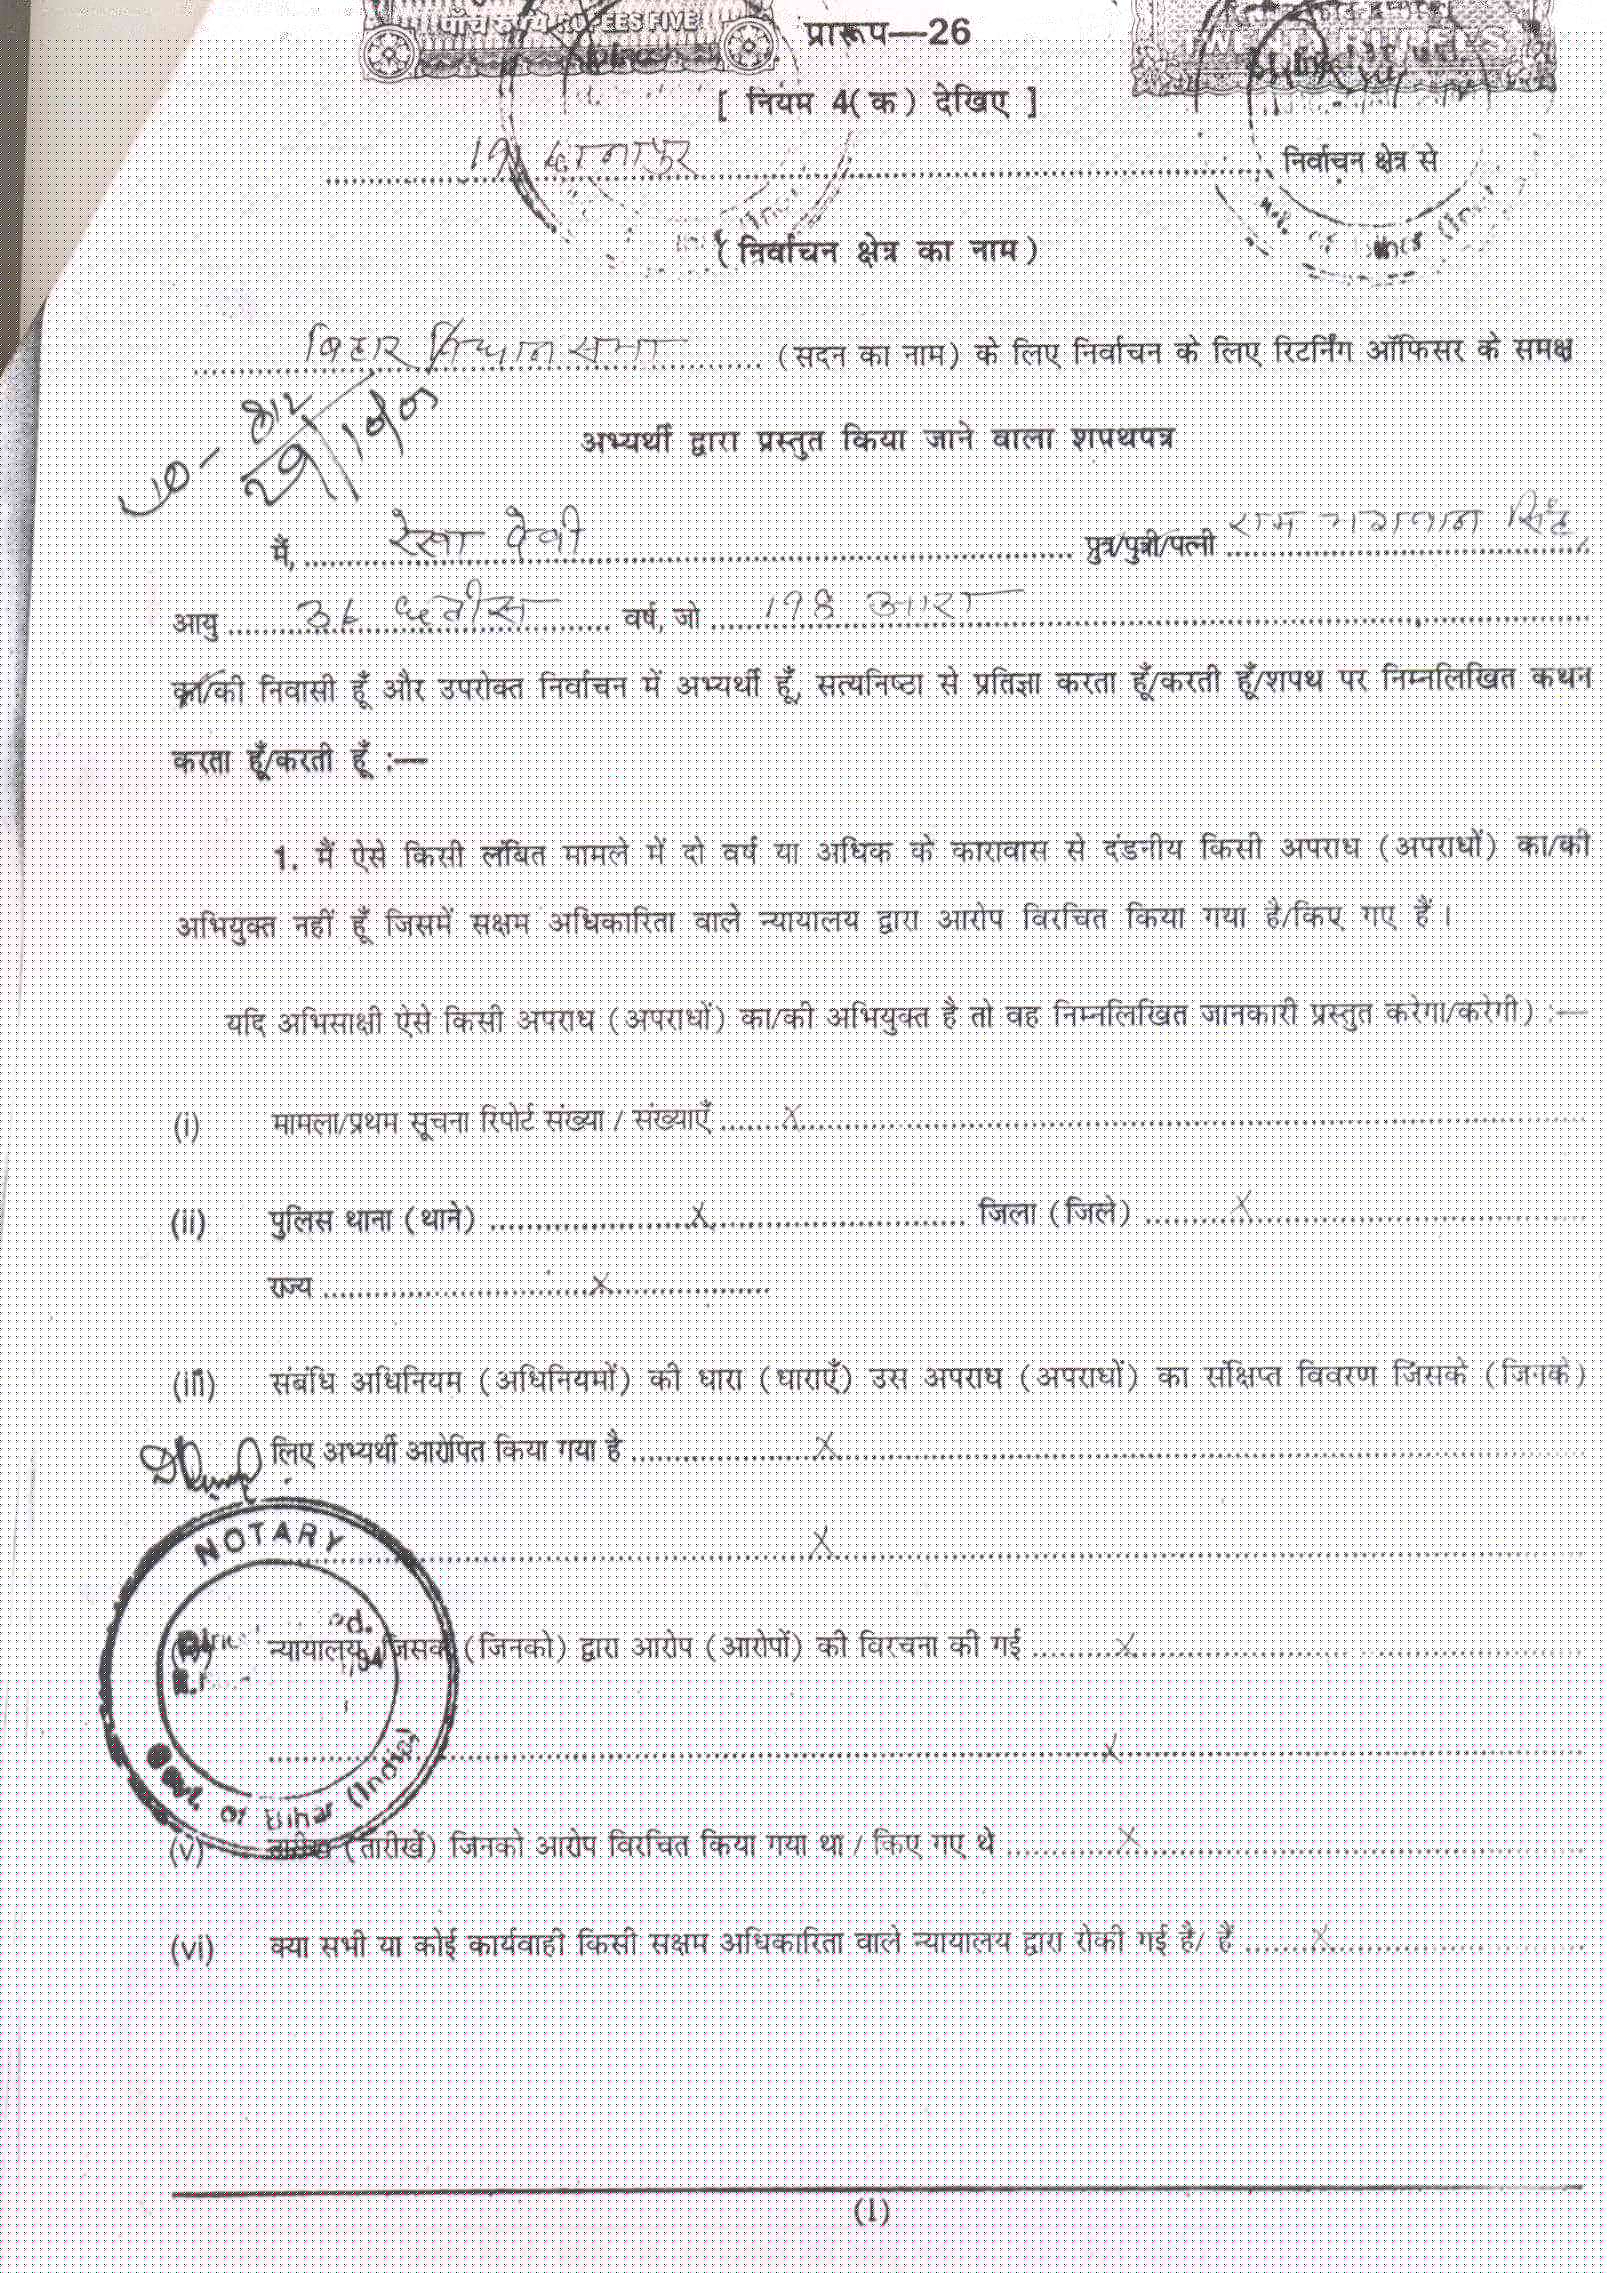 पाँच रुपये RUPEES FIVE
प्रारूप—26
[ नियम 4(क) देखिए ]
दानापुर निर्वाचन क्षेत्र से
(निर्वाचन क्षेत्र का नाम)
बिहार विधान सभा (सदन का नाम) के लिए निर्वाचन के लिए रिटर्निंग ऑफिसर के समक्ष
अभ्यर्थी द्वारा प्रस्तुत किया जाने वाला शपथपत्र
मैं, रेखा देवी पुत्र/पुत्री/पत्नी राम भगवान सिंह
आयु 36 छतीस वर्ष, जो 198 आरा
का/की निवासी हूँ और उपरोक्त निर्वाचन में अभ्यर्थी हूँ, सत्यनिष्ठा से प्रतिज्ञा करता हूँ/करती हूँ/शपथ पर निम्नलिखित कथन
करता हूँ/करती हूँ :—
1. मैं ऐसे किसी लंबित मामले में दो वर्ष या अधिक के कारावास से दंडनीय किसी अपराध (अपराधों) का/की
अभियुक्त नहीं हूँ जिसमें सक्षम अधिकारिता वाले न्यायालय द्वारा आरोप विरचित किया गया है/किए गए हैं।
यदि अभिसाक्षी ऐसे किसी अपराध (अपराधों) का/की अभियुक्त है तो वह निम्नलिखित जानकारी प्रस्तुत करेगा/करेगी) :—
(i) मामला/प्रथम सूचना रिपोर्ट संख्या / संख्याएँ x
(ii) पुलिस थाना (थाने) x जिला (जिले) x
राज्य x
(iii) संबंधि अधिनियम (अधिनियमों) की धारा (धाराएँ) उस अपराध (अपराधों) का संक्षिप्त विवरण जिसके (जिनके)
लिए अभ्यर्थी आरोपित किया गया है x
x
NOTARY
न्यायालय जिसके (जिनको) द्वारा आरोप (आरोपों) की विरचना की गई x
x
Govt. of Bihar (India)
(v) तारीख (तारीखें) जिनको आरोप विरचित किया गया था / किए गए थे x
(vi) क्या सभी या कोई कार्यवाही किसी सक्षम अधिकारिता वाले न्यायालय द्वारा रोकी गई है/ हैं x
(1)